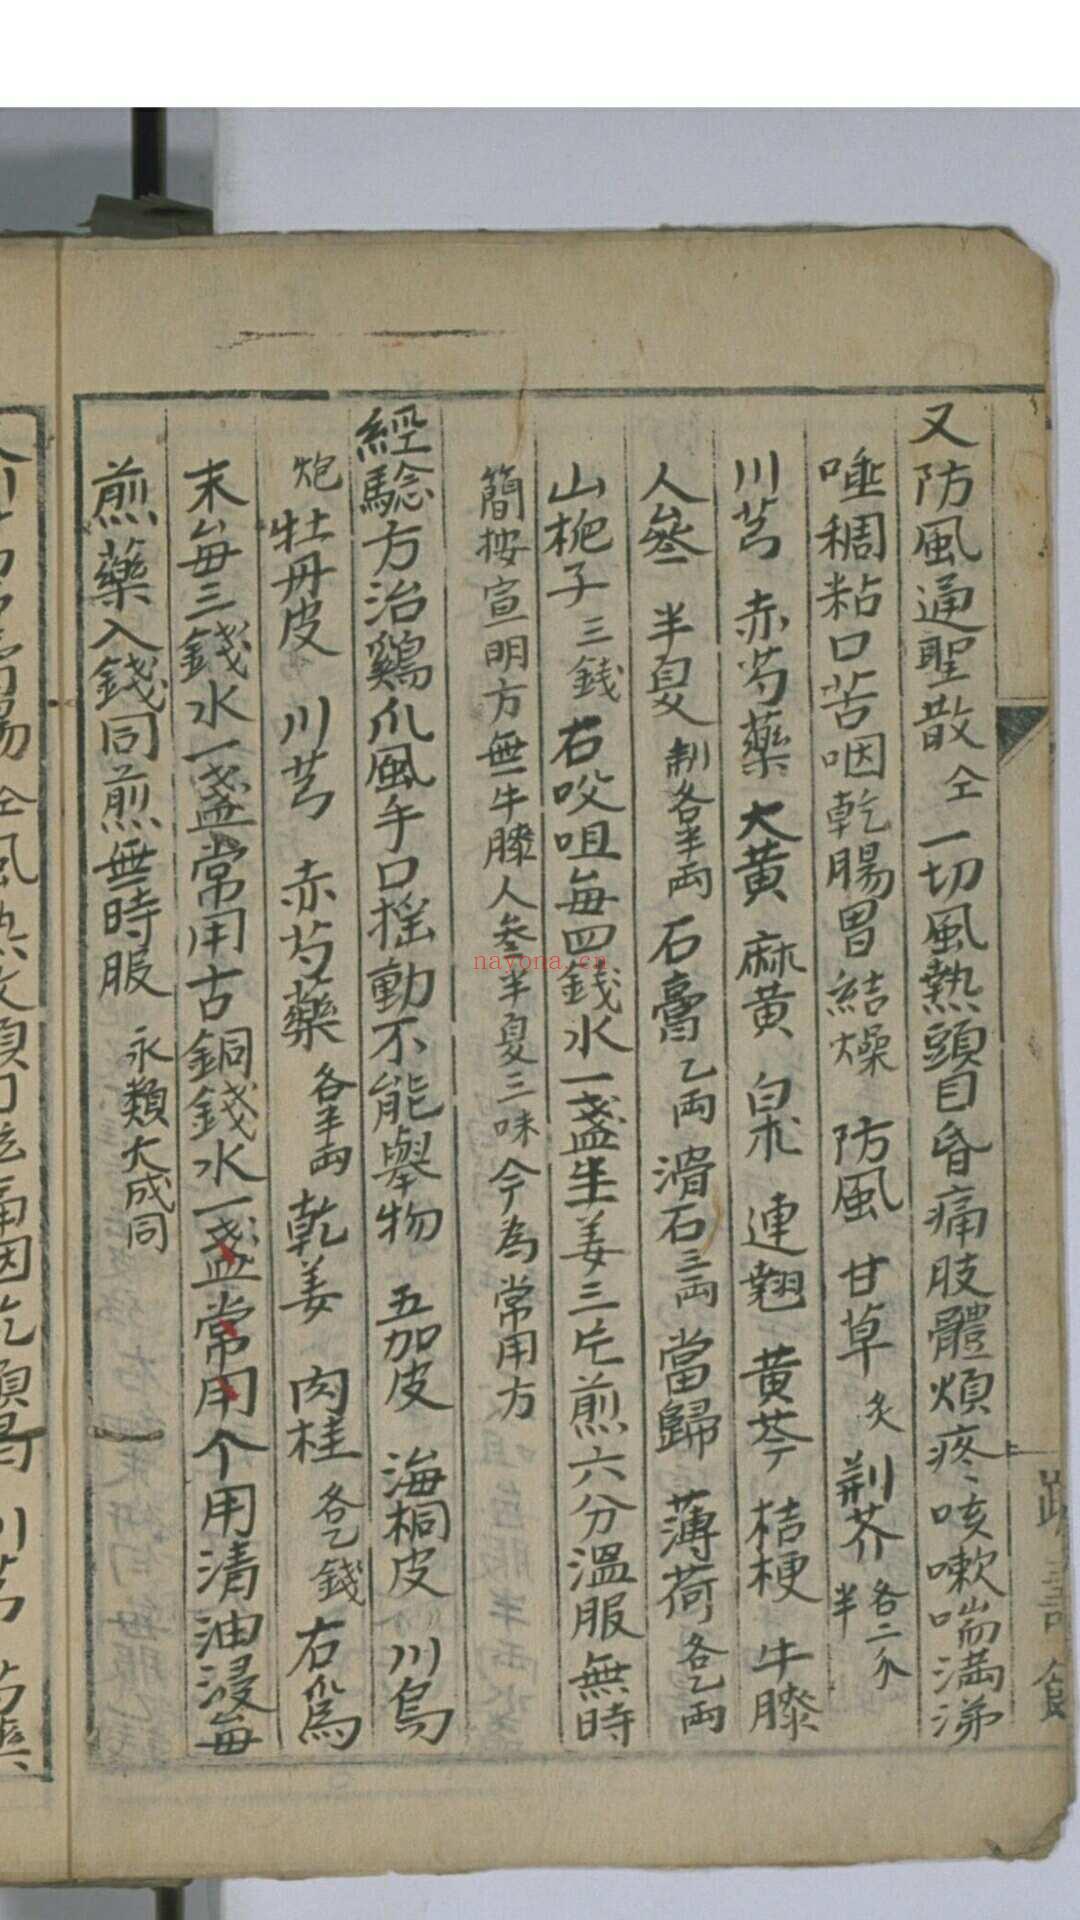 又防風通聖散仝一切風熱頭目昏痛肢體煩疼咳嗽喘満涕
唾稠粘口苦咽乾腸胃結燥 防風 甘草炙 荆芥各二分半
川芎 赤芍藥 大黄 麻黄 白朮 連翹 黄芩 桔梗 牛膝
人參 半夏制各半両 石膏乙両 滑石三両 當歸 薄荷各乙両
山栀子三錢 右㕮咀每四錢水一盞生姜三片煎六分温服無時
簡按宣明方無牛膝人參半夏三味今為常用方
經驗方治鷄爪風手口揺動不能舉物 五加皮 海桐皮 川烏
炮 牡丹皮 川芎 赤芍藥各半両 乾姜 肉桂各乙錢 右爲
末每三錢水一盞常用古銅錢水一盞常用个用清油浸每
煎藥入錢同煎無時服 永類大成同
nayona.cn